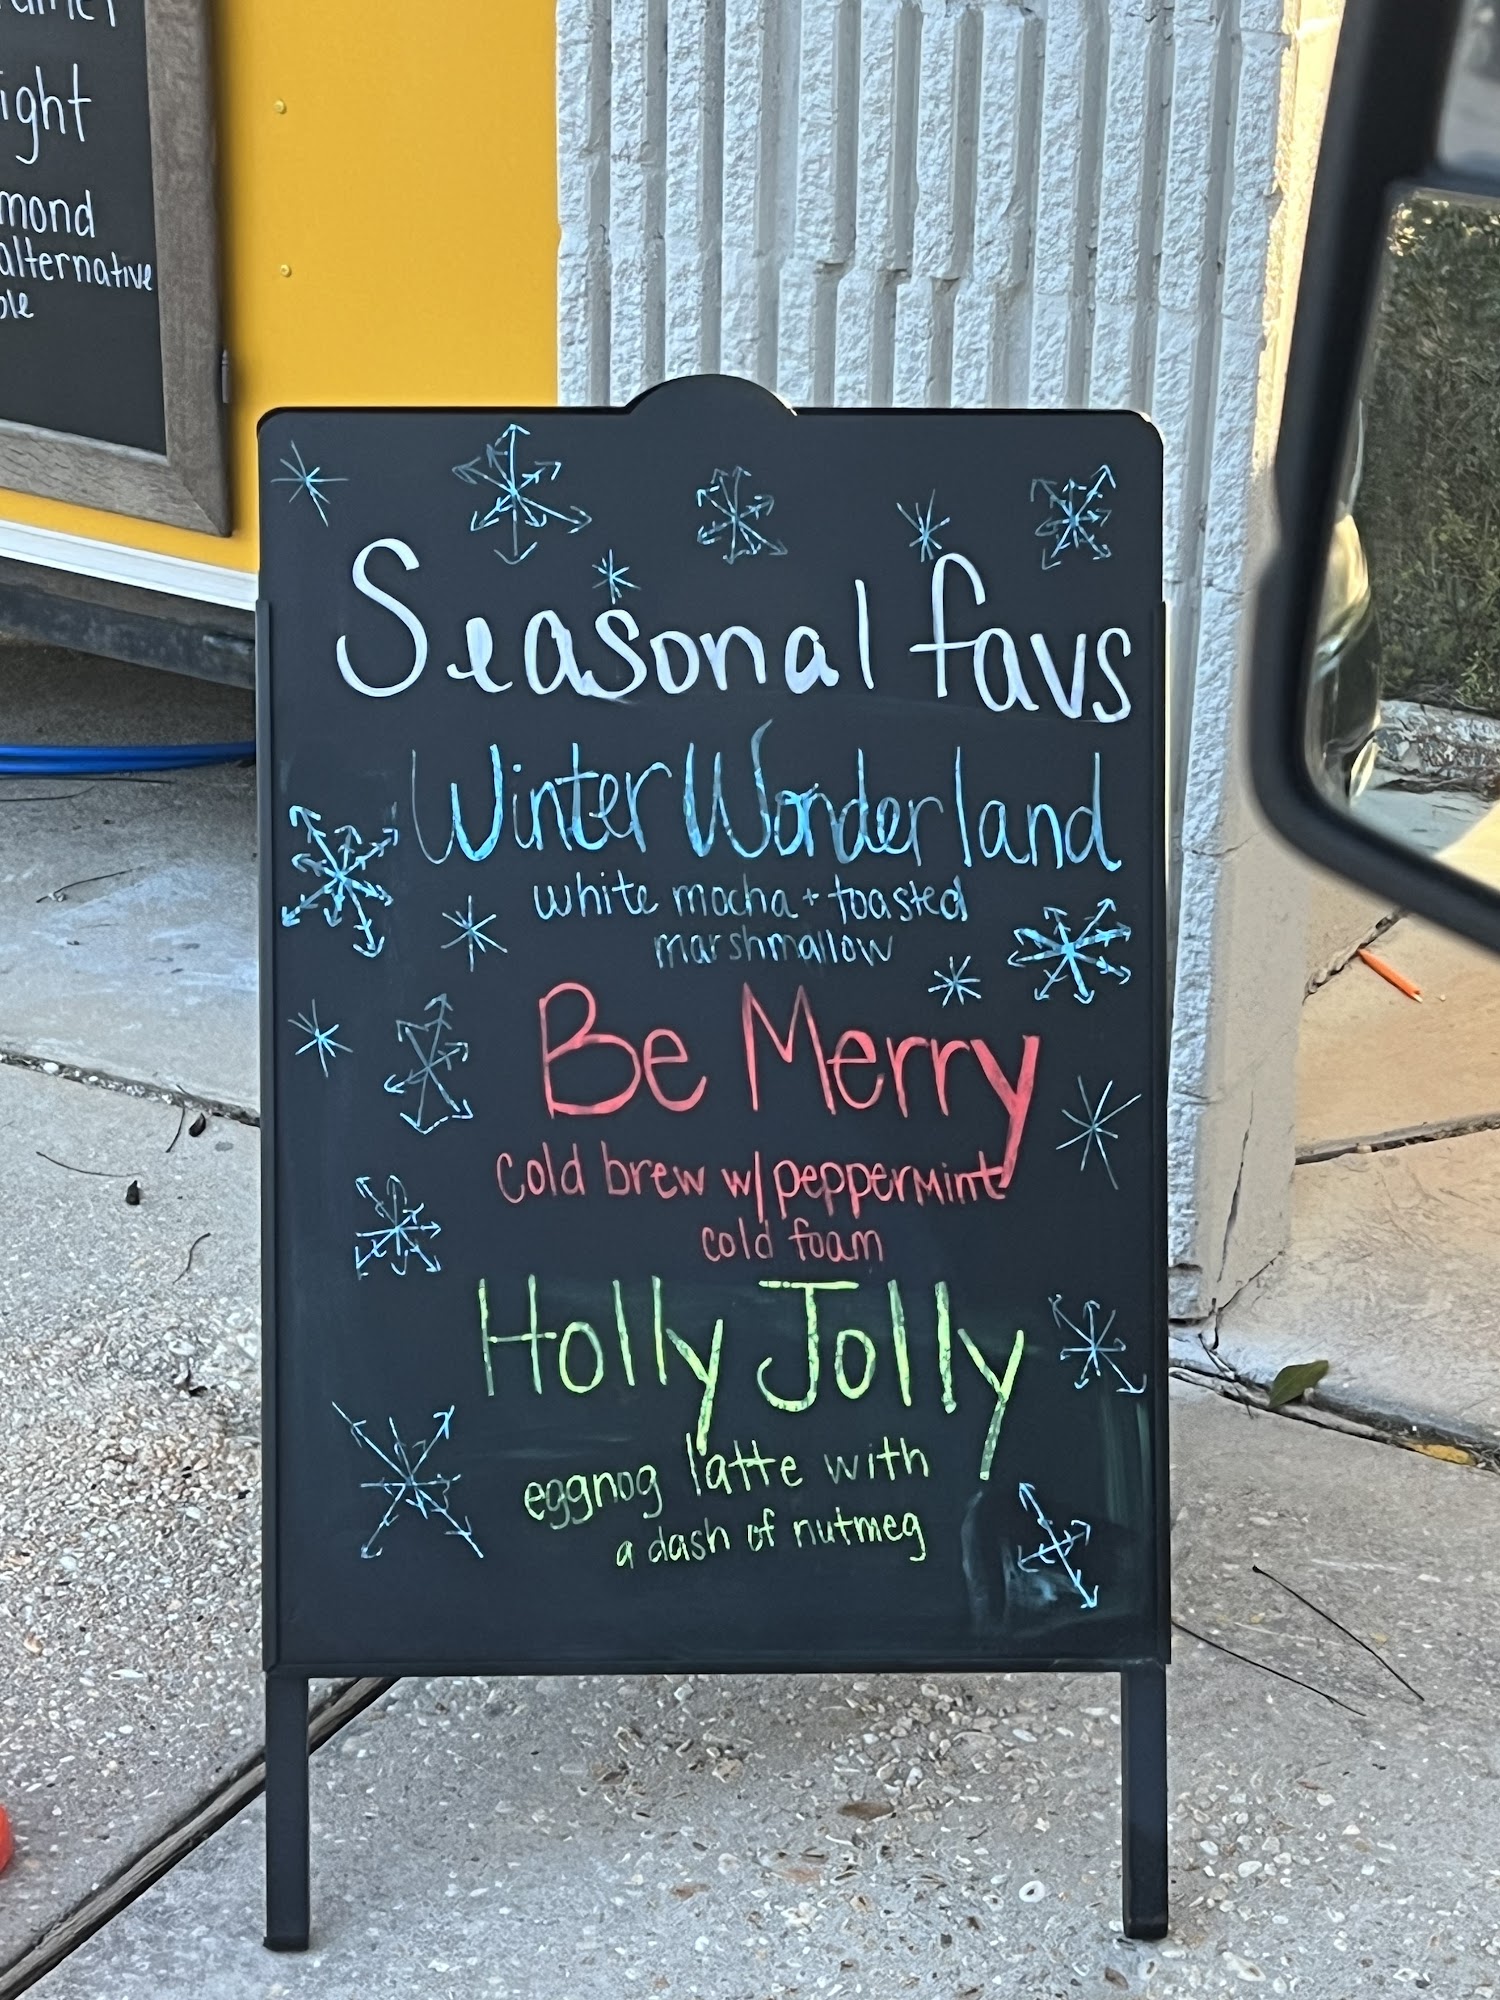 ight
mond
alternative
Seasonal favs
Winter Wonderland
white mocha + toasted
marshmallow
Be Merry
Cold brew w/ peppermint
cold foam
Holly Jolly
eggnog latte with
a dash of nutmeg